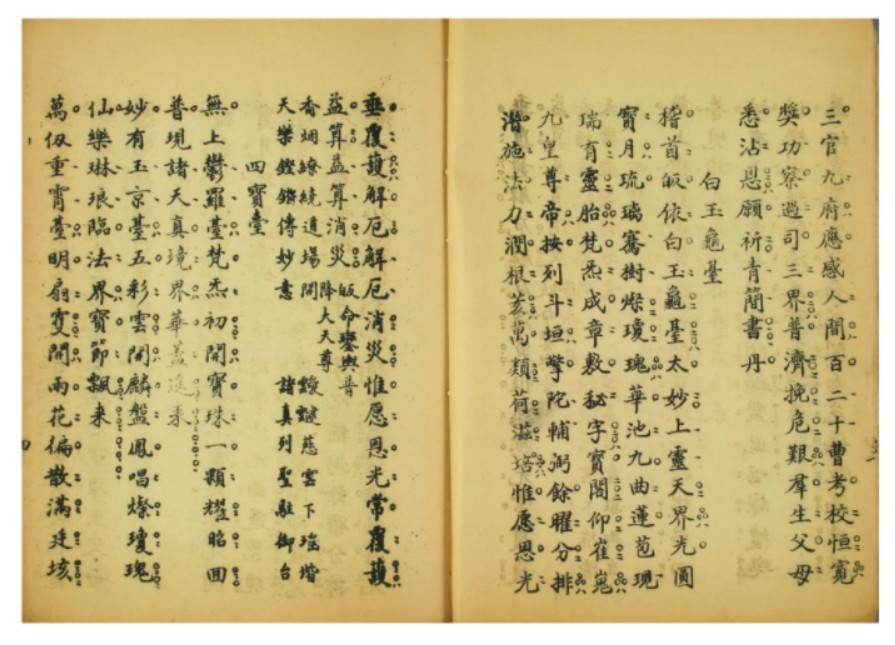 三官九府應感人間百二十曹考校恒寬
獎功察過司三界普濟挽危艱羣生父母
悉沾恩願祈青簡書丹
白玉龜臺
稽首皈依白玉龜臺太妙上靈天界光圓
寶月琉璃騫樹燦瓊瑰華池九曲蓮苞現
瑞育靈胎梵炁成章敷秘字寶閣仰崔嵬
九皇尊帝按列斗垣擎陀輔弼餘曜分排
潛施法力潤根荄萬類荷滋培惟愿恩光
垂覆護解厄解厄消災惟愿恩光常覆護
益算益算消災皈命鑾輿普降大天尊
香烟繚繞道場開靉靆慈雲下瑤堦
天樂鏗鏘傳妙意諸真列聖駐御台
四寶臺
無上鬱羅臺梵炁初開寶珠一顆耀昭回
普現諸天真境界華蓋遙來
妙有玉京臺五彩雲開麟盤鳳唱燦瓊瑰
仙樂琳琅臨法界寶節飄来
萬仭重霄臺明扇雙開雨花徧散滿廷垓